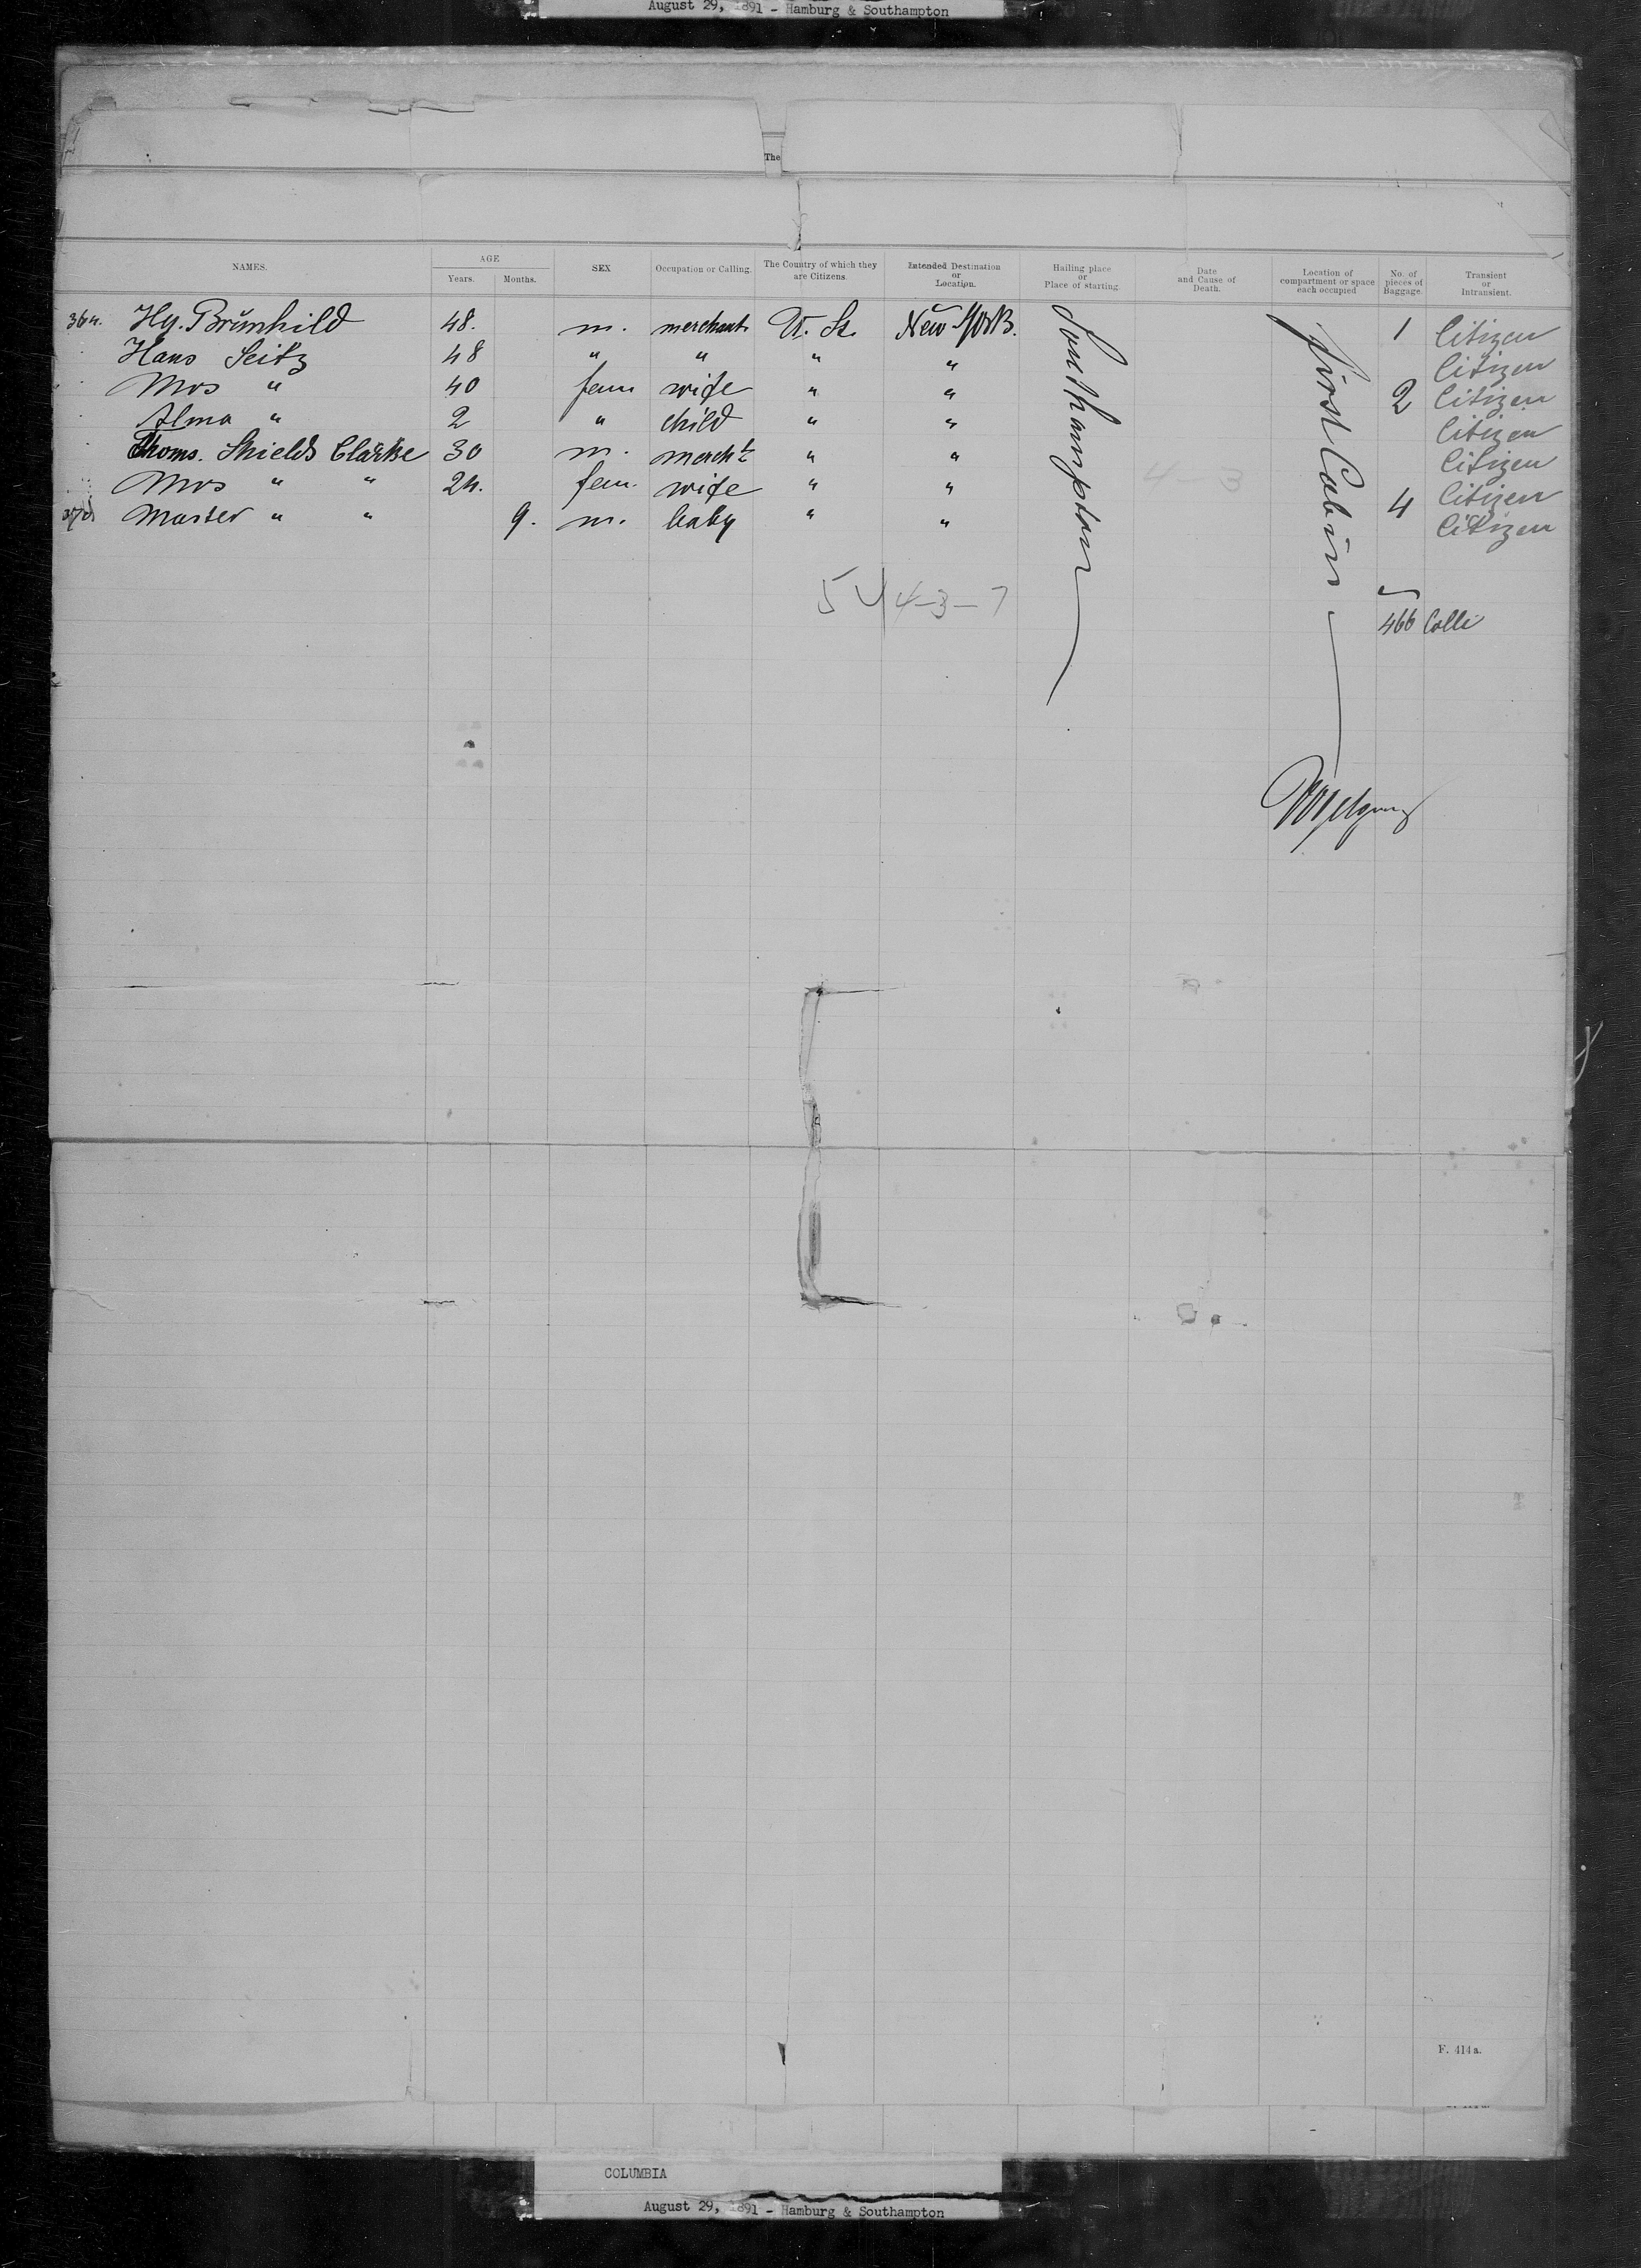 August 29, 1891 - Hamburg & Southampton
The
NAMES. AGE Years. Months. SEX Occupation or Calling. The Country of which they are Citizens. Intended Destination or Location. Hailing place or Place of starting. Date and Cause of Death. Location of compartment or space each occupied No. of pieces of Baggage. Transient or Intransient.
364. Hy. Brünhild 48. m. merchant U. St. New York. Southampton First Cabin 1 Citizen
Hans Seitz 48 " " " " Citizen
Mrs " 40 fem wife " " 2 Citizen
Alma " 2 " child " " Citizen
Thoms. Shields Clarke 30 m. mercht " " Citizen
Mrs " " 24. fem. wife " " 4 Citizen
370 Master " " 9. m. baby " " Citizen
4-3
5 4 4-3-7
466 Colli
F. 414a.
COLUMBIA
August 29, 1891 - Hamburg & Southampton